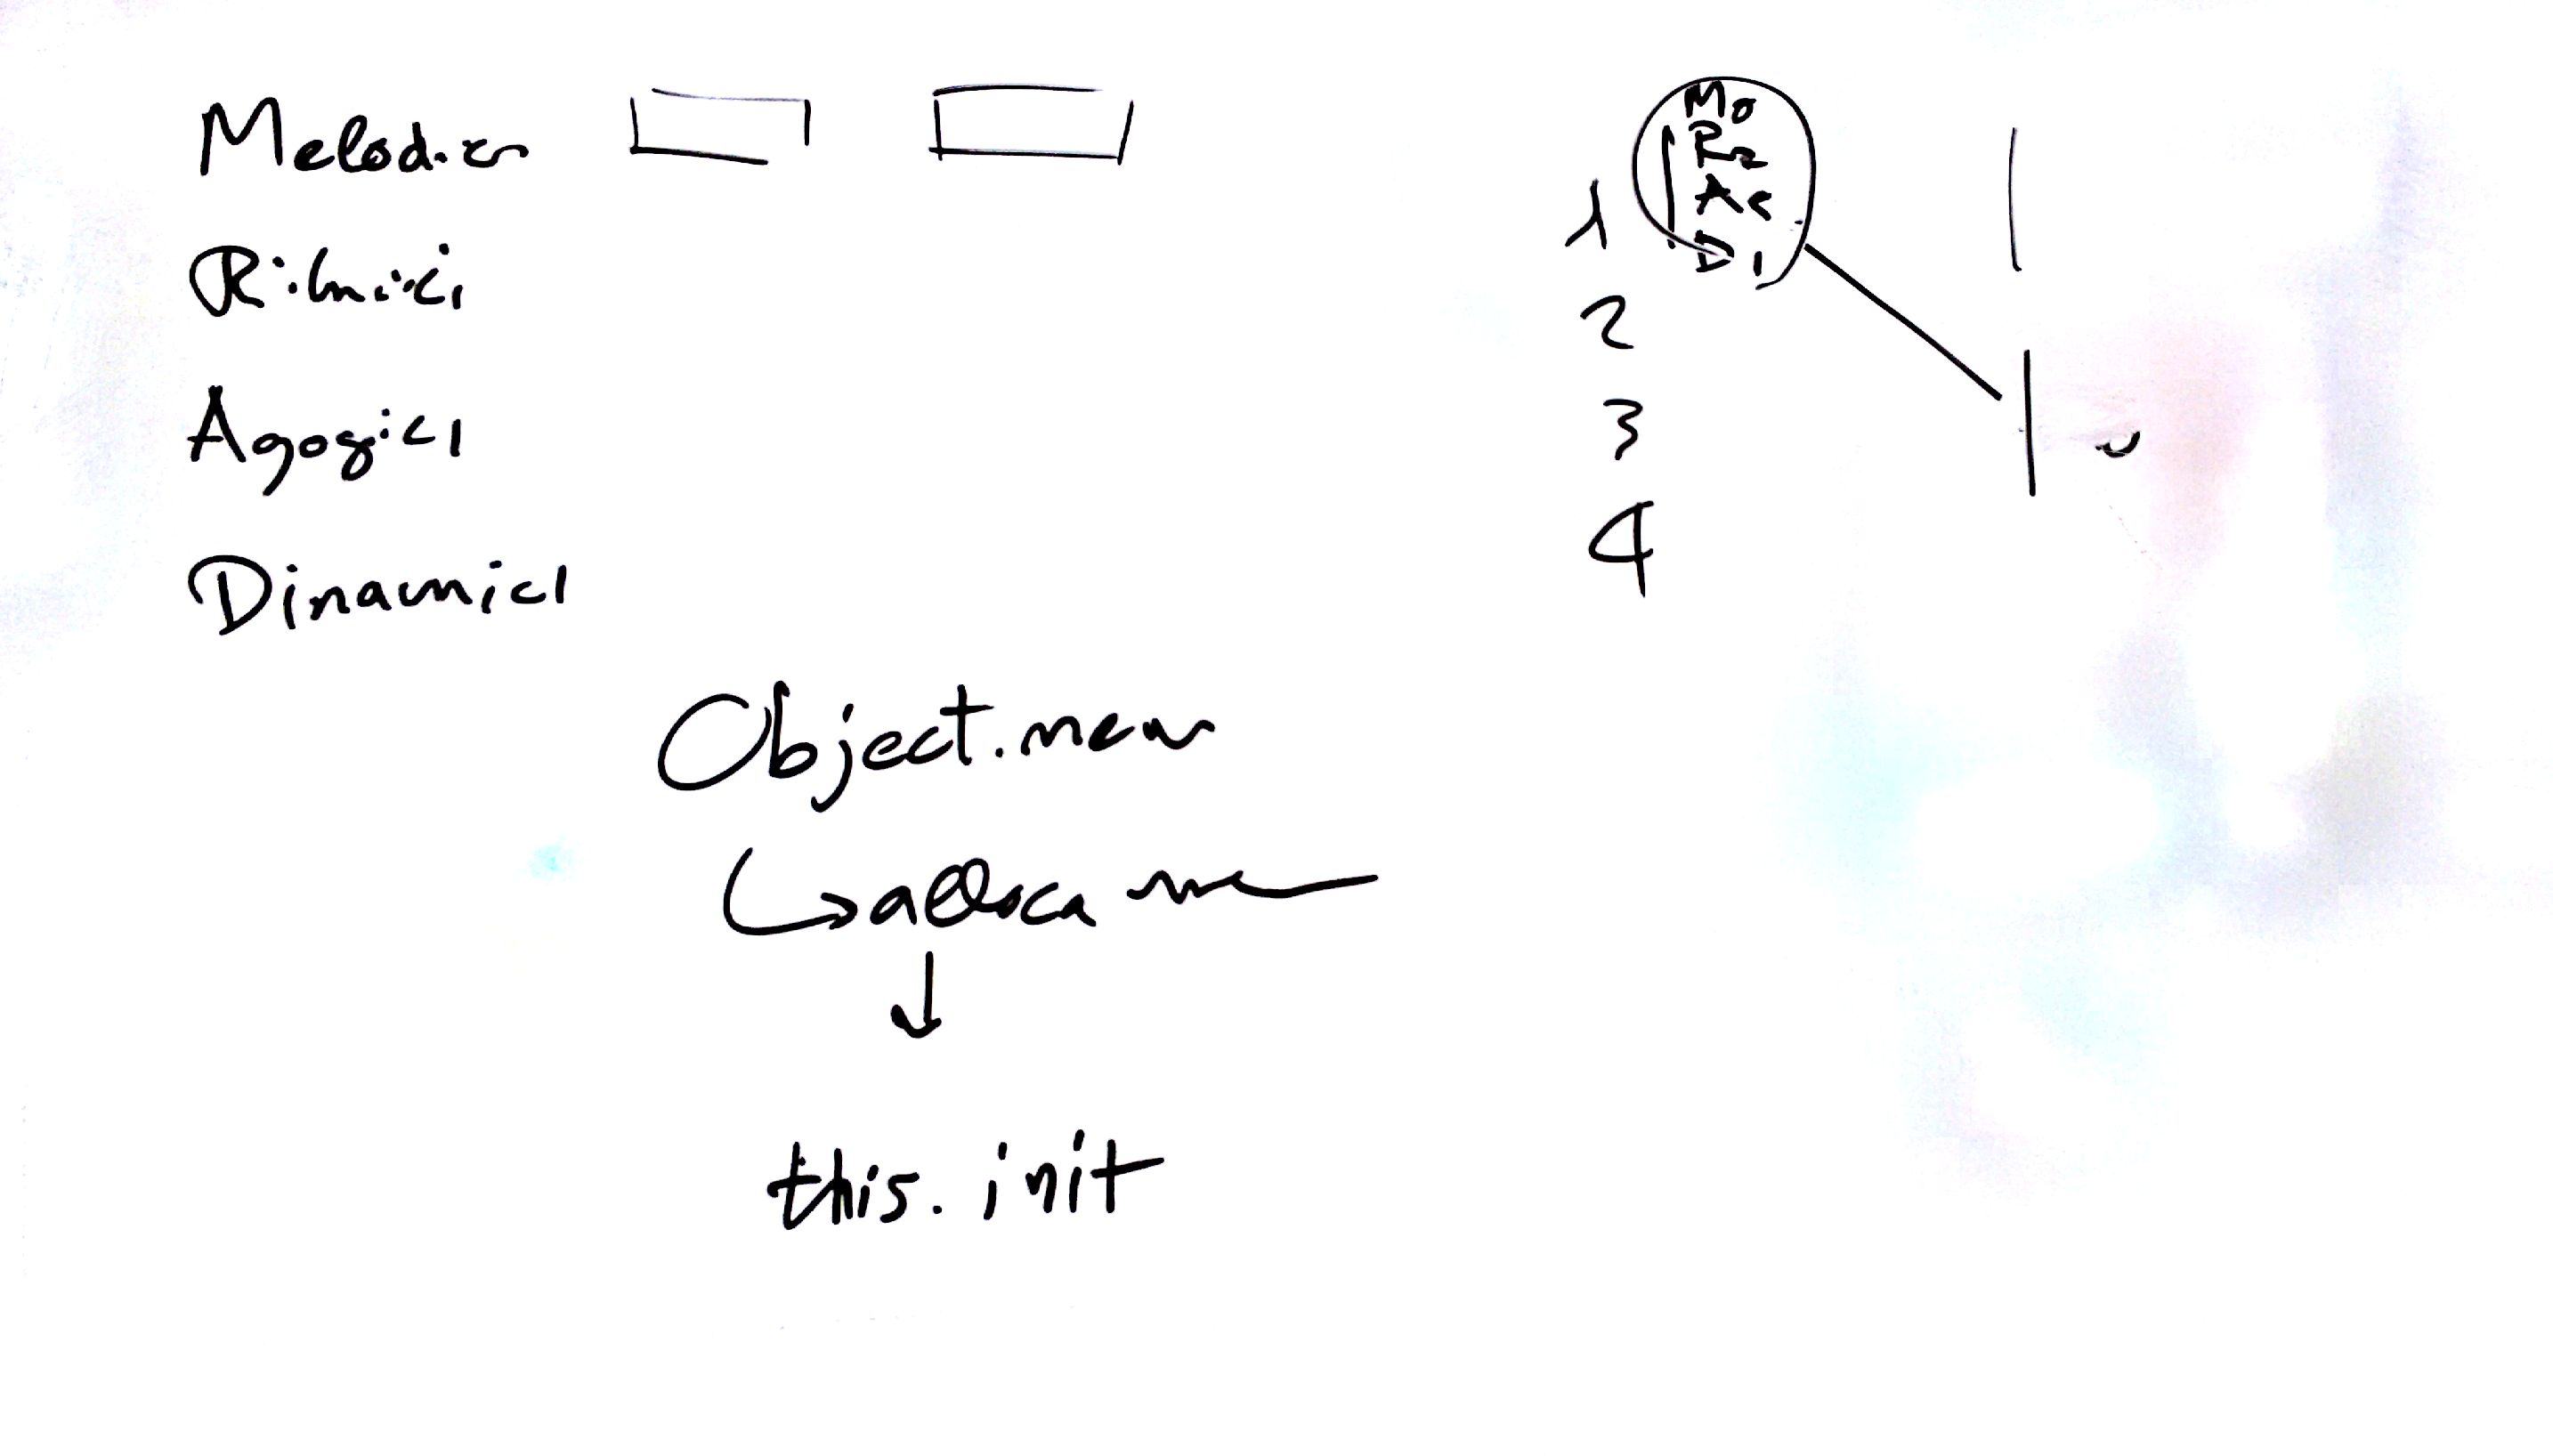 Melodici
Ritmici
Agogici
Dinamici
Mo
R2
Ag
D1
1
2
3
4
Object.new
alloca
this.init